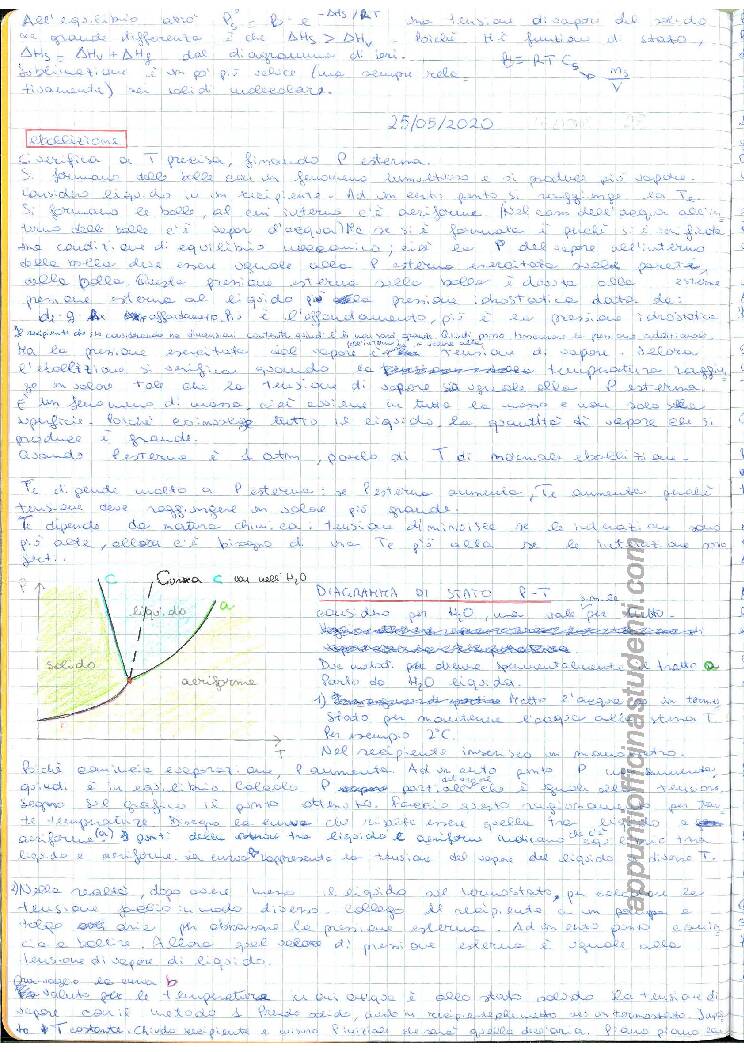 All'equilibrio avrò P°s = P° e^-ΔHs/RT una tensione di vapore del solido
una grande differenza è che ΔHs > ΔHv. Poiché H è funzione di stato,
ΔHs = ΔHv + ΔHf dal diagramma di ieri.
Sublimazione è un po' più veloce (ma sempre rela-
tivamente) nei solidi molecolari.
P = RT Cs
ms
V
25/05/2020
ebollizione
Si verifica a T precisa, fissando P esterna.
Si formano delle bolle con un fenomeno tumultuoso e si produce più vapore.
Considero liquido in un recipiente. Ad un certo punto si raggiunge la Te.
Si formano le bolle, al cui interno c'è aeriforme. Nel caso dell'acqua all'in-
terno delle bolle c'è vapor d'acqua. Ma se si è formata è perché si è
una condizione di equilibrio meccanico; cioè la P del vapore all'interno
della bolla deve essere uguale alla P esterna esercitata sulle pareti
della bolla. Questa pressione esterna sulla bolla è dovuta alla
pressione esterna al liquido più alla pressione idrostatica data da:
d·g affondamento. Più è l'affondamento, più è la pressione idrostatica
Ma la pressione esercitata dal vapore è la tensione di vapore. Allora
l'ebollizione si verifica quando la temperatura raggiun-
ge un valore tale che la tensione di vapore sia uguale alla P esterna.
È un fenomeno di massa, cioè avviene in tutta la massa e non solo sulla
superficie. Poiché coinvolge tutto il liquido, la quantità di vapore che si
produce è grande.
Quando Pesterna è 1 atm, parlo di T di normale ebollizione.
Te dipende molto da P esterna: se P esterna aumenta, Te aumenta perché
tensione deve raggiungere un valore più grande.
Te dipende da natura chimica: tensione diminuisce se le interazioni sono
più alte, allora c'è bisogno di una Te più alta se le interazioni sono
forti.
P
C
Curva c con nell'H2O
liquido
a
solido
aeriforme
T
DIAGRAMMA DI STATO P-T
considero per H2O, ma vale per tutto
Due metodi per determinare sperimentalmente il tratto a
Parto da H2O liquida.
1) Metto l'acqua in termo-
stato per mantenere l'acqua alla stessa T.
Per esempio 2°C.
Nel recipiente inserisco un manometro.
Poiché comincia evaporazione, P aumenta. Ad un certo punto P
quindi è in equilibrio. Calcolo P parziale del vapore che è uguale alla tensione,
segno sul grafico il punto ottenuto. Faccio questo ragionamento per tan-
te temperature. Disegno la curva che risulta essere quella tra liquido e
aeriforme (a). I punti della curva tra liquido e aeriforme indicano che c'è equilibrio tra
liquido e aeriforme. La curva rappresenta la tensione del vapore del liquido a diverse T.
2) Nella realtà, dopo avere messo il liquido nel termostato, per calcolare la
tensione faccio in modo diverso. Collego il recipiente a un pompa e
tolgo aria per abbassare la pressione esterna. Ad un certo punto comin-
cia a bollire. Allora quel valore di pressione esterna è uguale alla
tensione di vapore di liquido.
Ora voglio la curva b
Valuto per le temperature in cui acqua è allo stato solido la tensione di
vapore con il metodo 1. Prendo solido,
T costante. Chiudo recipiente e misuro P iniziale che sarà quella dell'aria. Piano piano
appuntiofficinastudenti.com